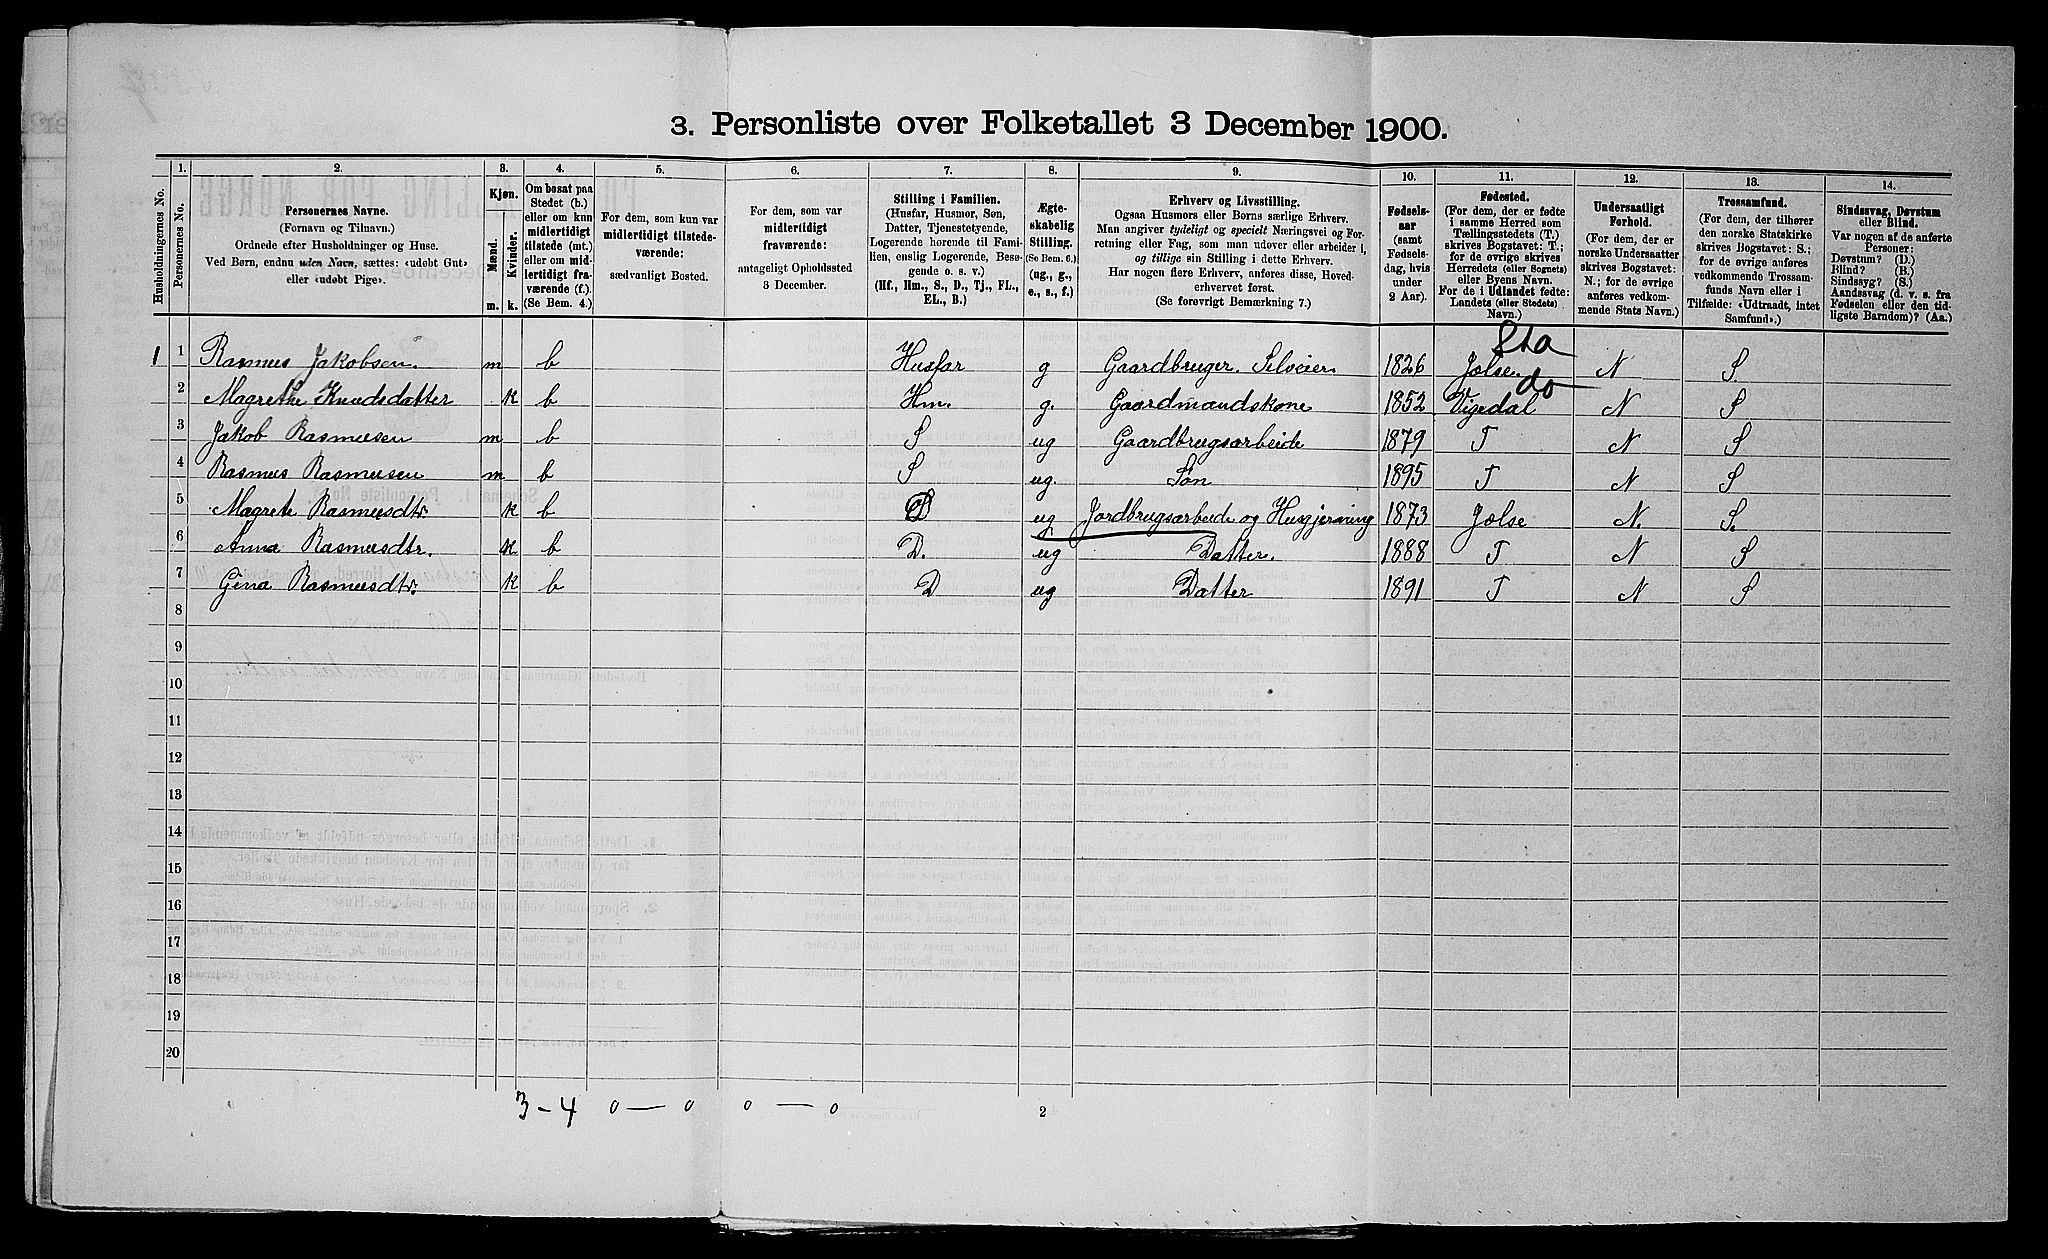 3. Personliste over Folketallet 3 December 1900.
1. 2. 3. 4. 5. 6. 7. 8. 9. 10. 11. 12. 13. 14.
Husholdningernes No.
Personernes No.
Personernes Navne.
(Fornavn og Tilnavn.)
Ordnede efter Husholdninger og Huse.
Ved Børn, endnu uden Navn, sættes: «udøbt Gut»
eller «udøbt Pige».
Kjøn.
Mænd.
Kvinder.
m. k.
Om bosat paa
Stedet (b.)
eller om kun
midlertidigt
tilstede (mt.)
eller om mid-
lertidigt fra-
værende (f.).
(Se Bem. 4.)
For dem, som kun var
midlertidigt tilstede-
værende:
sædvanligt Bosted.
For dem, som var
midlertidigt
fraværende:
antageligt Opholdssted
3 December.
Stilling i Familien.
(Husfar, Husmor, Søn,
Datter, Tjenestetyende,
Logerende hørende til Fami-
lien, enslig Logerende, Besø-
gende o. s. v.)
(Hf., Hm., S., D., Tj., FL.,
EL., B.)
Ægte-
skabelig
Stilling.
(Se Bem. 6.)
(ug., g.,
e., s., f.)
Erhverv og Livsstilling.
Ogsaa Husmors eller Børns særlige Erhverv.
Man angiver tydeligt og specielt Næringsvei og For-
retning eller Fag, som man udøver eller arbeider i,
og tillige sin Stilling i dette Erhverv.
Har nogen flere Erhverv, anføres disse, Hoved-
erhvervet først.
(Se forøvrigt Bemærkning 7.)
Fødsels-
aar
(samt
Fødsels-
dag, hvis
under
2 Aar).
Fødested.
(For dem, der er fødte
i samme Herred som
Tællingsstedets (T.)
skrives Bogstavet: T.;
for de øvrige skrives
Herredets (eller Sognets)
eller Byens Navn.
For de i Udlandet fødte:
Landets (eller Stedets)
Navn.)
Undersaatligt
Forhold.
(For dem, der er
norske Undersaatter
skrives Bogstavet:
N.; for de øvrige
anføres vedkom-
mende Stats Navn.)
Trossamfund.
(For dem, der tilhører
den norske Statskirke
skrives Bogstavet: S.;
for de øvrige anføres
vedkommende Trossam-
funds Navn eller i
Tilfælde: «Udtraadt, intet
Samfund».)
Sindssvag, Døvstum
eller Blind.
Var nogen af de anførte
Personer:
Døvstum? (D.)
Blind? (B.)
Sindssyg? (S.)
Aandssvag (d. v. s. fra
Fødselen eller den tid-
ligste Barndom)? (Aa.)
Sta
1 1 Rasmus Jakobsen. m b Husfar g Gaardbruger. Selveier. 1826 Jølse. N S
do
2 Magrethe Knudsdatter k b Hm. g. Gaardmandskone 1852 Vigedal N S
3 Jakob Rasmussen m b S ug Gaardbrugsarbeide 1879 T N S
4 Rasmus Rasmussen m b S ug. Søn 1895 T N S
5 Magrete Rasmusdtr. k b D ug Jordbrugsarbeide og Husgjerning 1873 Jølse N. S.
6 Anna Rasmusdtr. k b D. ug Datter. 1888 T N S
7 Gina Rasmusdtr. k b D ug Datter 1891 T N S
8
9
10
11
12
13
14
15
16
17
18
19
20
3-4 0 — 0 0 — 0 2